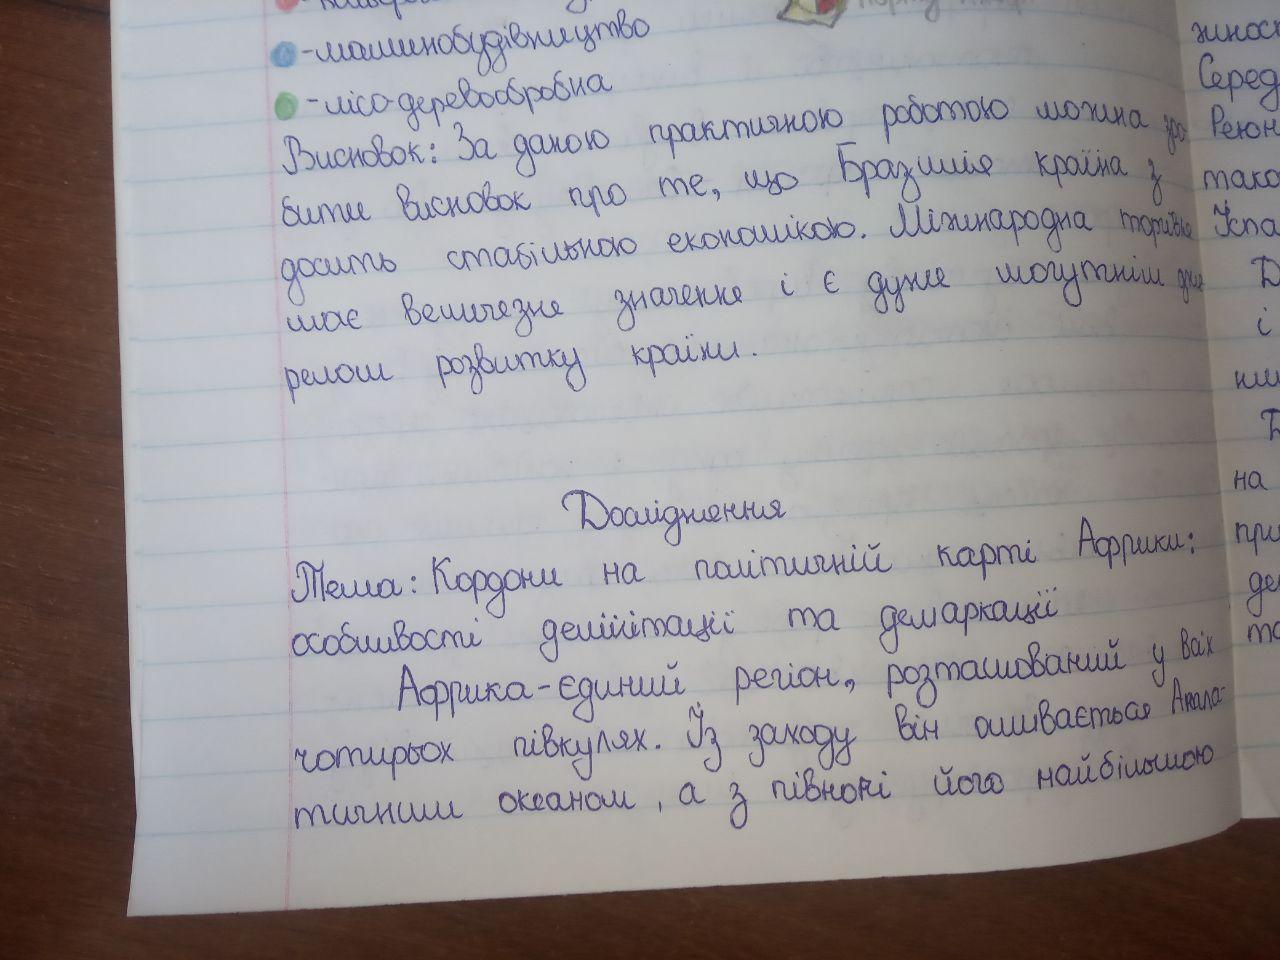 -машинобудівництво
-лісо-деревообробна
Висновок: За даною практичною роботою можна зро
бити висновок про те, що Бразилія країна з
досить стабільною економікою. Міжнародна торгівля
має величезне значення і є дуже могутнім дже
релом розвитку країни.
Дослідження
Тема: Кордони на політичній карті Африки:
особливості делімітації та демаркації
Африка-єдиний регіон, розташований у всіх
чотирьох півкулях. Із заходу він омивається Атла-
тичним океаном, а з півночі його найбільшою
Серед
тако
Іспа
і
на
при